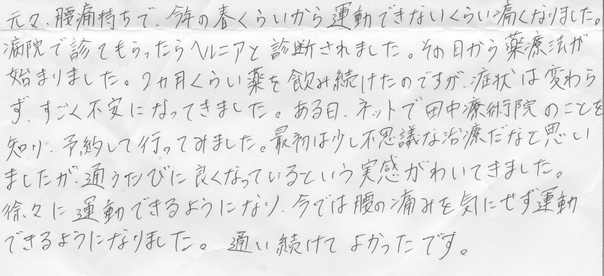 元々、腰痛持ちで、今年の春くらいから運動できないくらい痛くなりました。
病院で診てもらったらヘルニアと診断されました。その日から薬療法が
始まりました。2ヵ月くらい薬を飲み続けたのですが、症状は変わら
ず、すごく不安になってきました。ある日、ネットで田中療術院のことを
知り、予約して行ってみました。最初は少し不思議な治療だなと思い
ましたが、通うたびに良くなっているという実感がわいてきました。
徐々に運動できるようになり、今では腰の痛みを気にせず運動
できるようになりました。通い続けてよかったです。